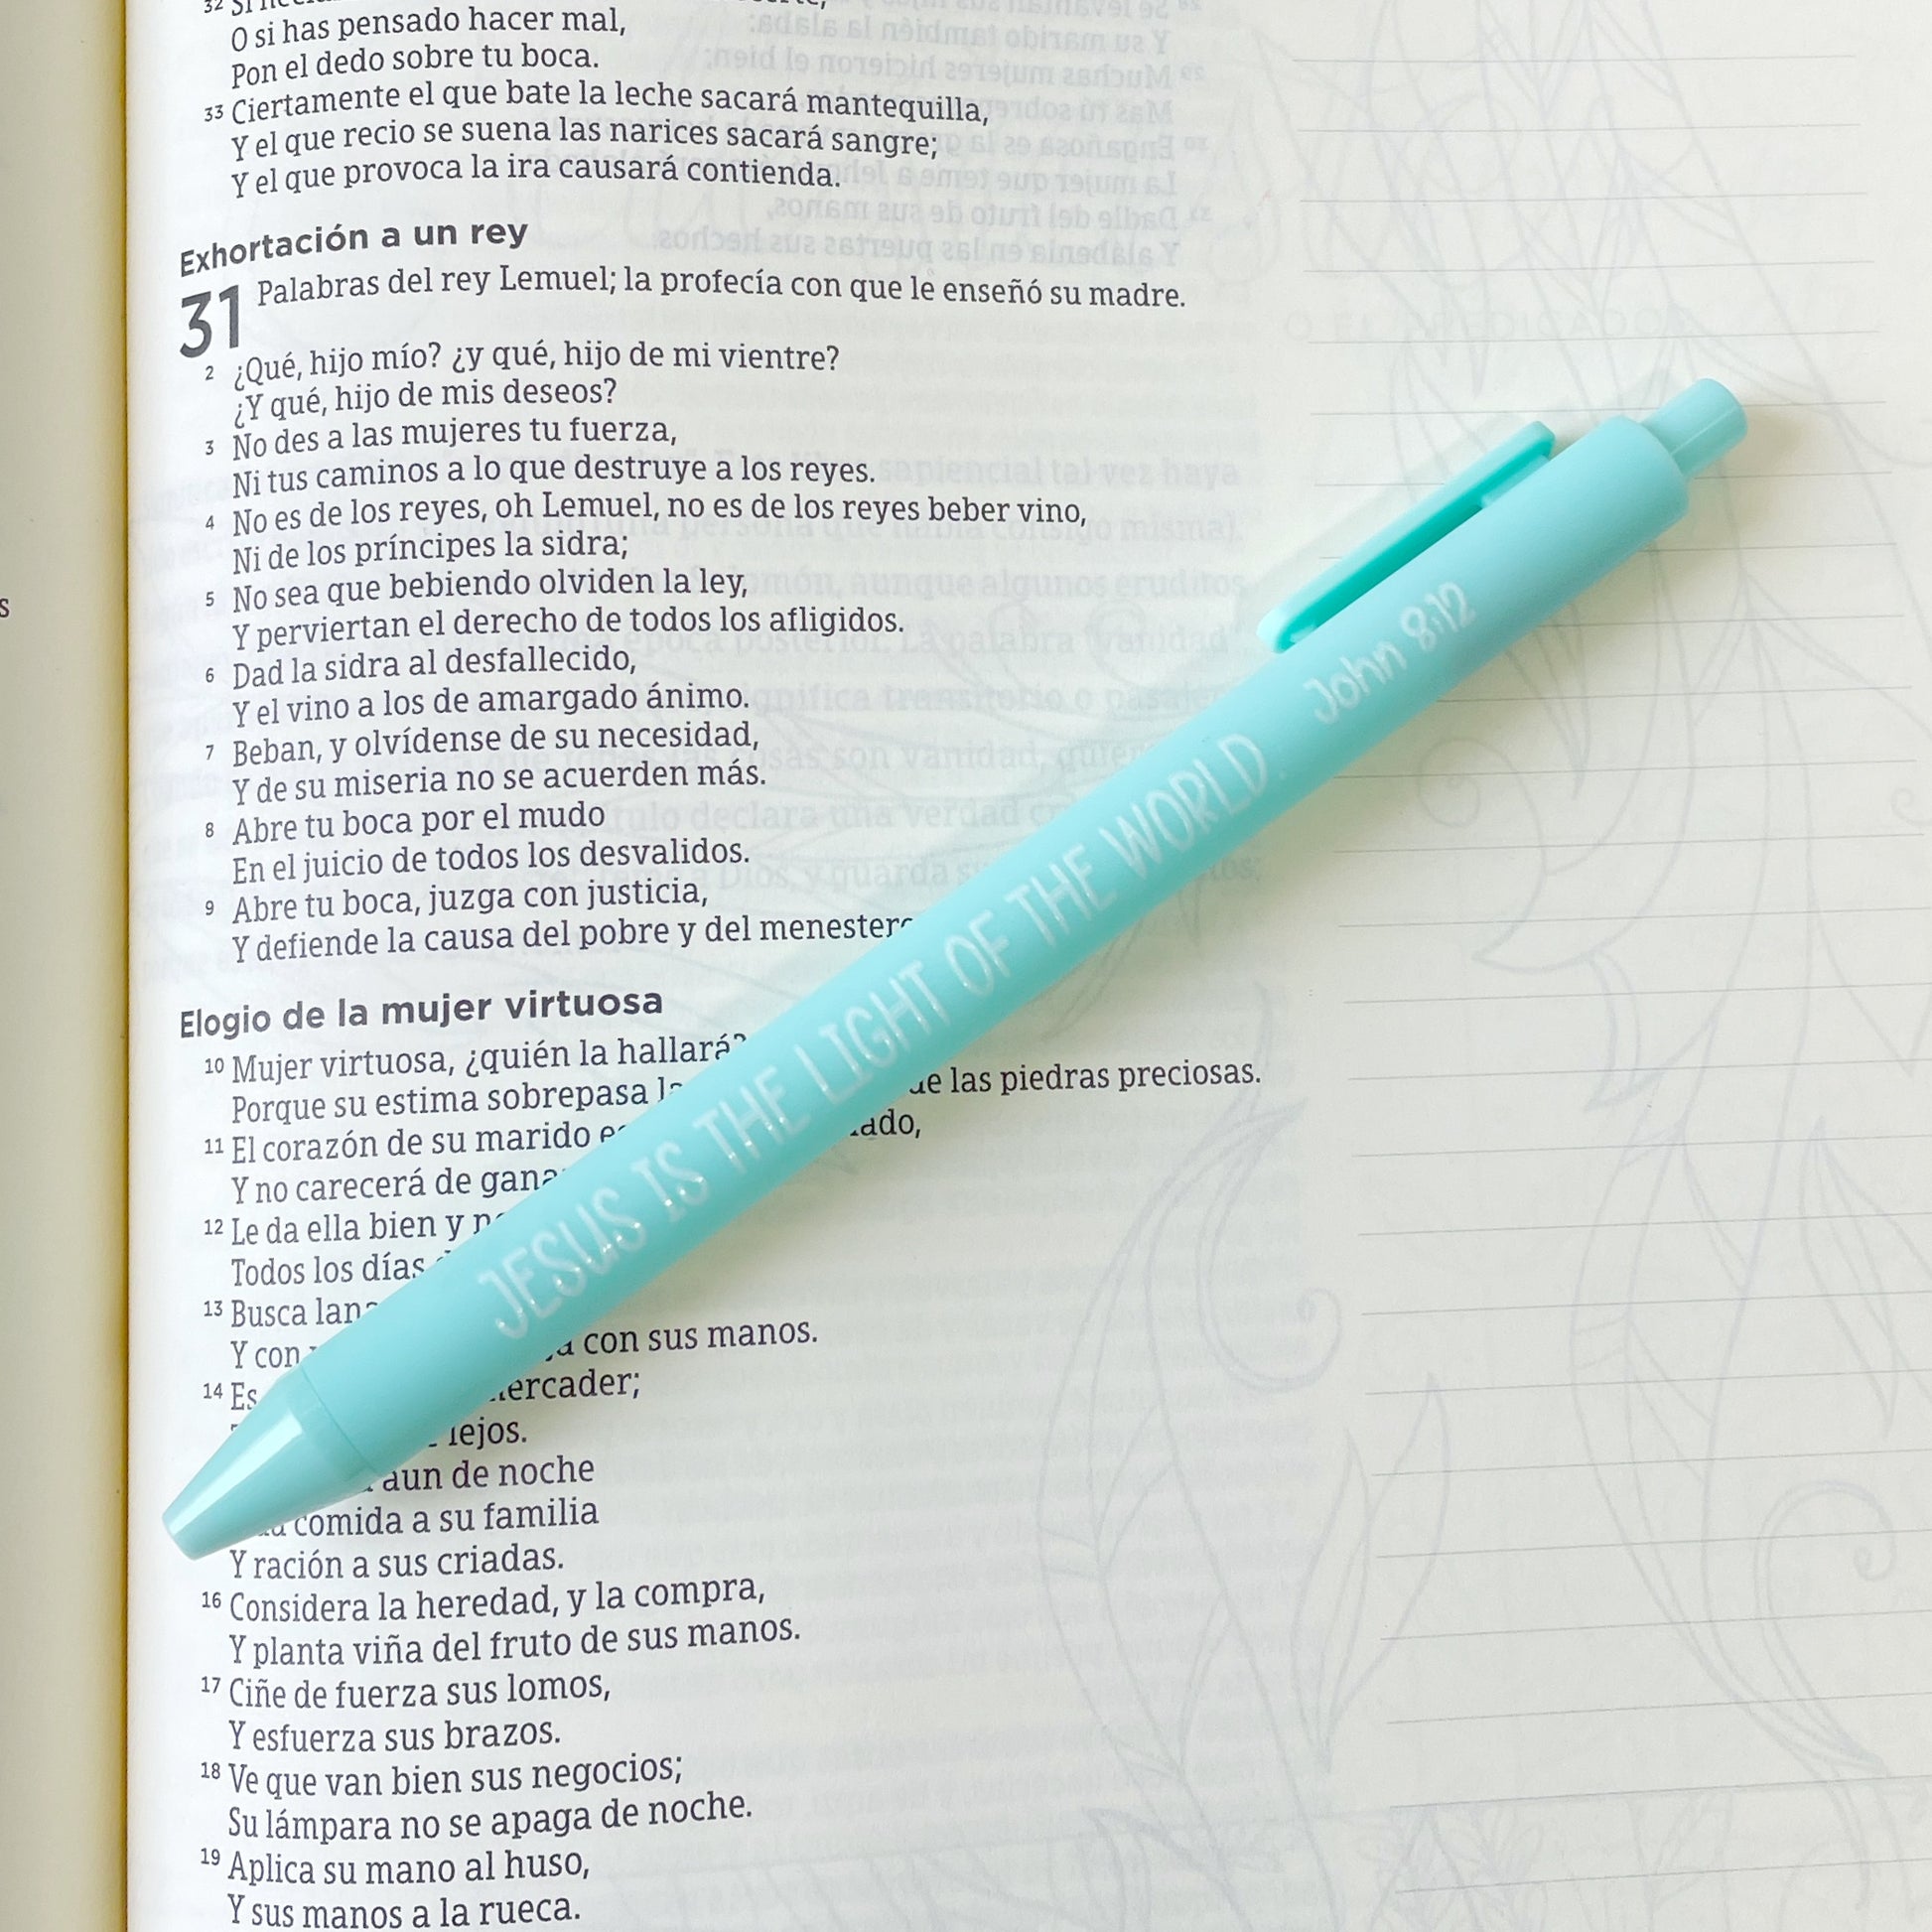 32 Si
O si has pensado hacer mal,
Pon el dedo sobre tu boca.
33 Ciertamente el que bate la leche sacará mantequilla,
Y el que recio se suena las narices sacará sangre;
Y el que provoca la ira causará contienda.
Exhortación a un rey
31 Palabras del rey Lemuel; la profecía con que le enseñó su madre.
2 ¿Qué, hijo mío? ¿y qué, hijo de mi vientre?
¿Y qué, hijo de mis deseos?
3 No des a las mujeres tu fuerza,
Ni tus caminos a lo que destruye a los reyes.
4 No es de los reyes, oh Lemuel, no es de los reyes beber vino,
Ni de los príncipes la sidra;
5 No sea que bebiendo olviden la ley,
Y perviertan el derecho de todos los afligidos.
6 Dad la sidra al desfallecido,
Y el vino a los de amargado ánimo.
7 Beban, y olvídense de su necesidad,
Y de su miseria no se acuerden más.
8 Abre tu boca por el mudo
En el juicio de todos los desvalidos.
9 Abre tu boca, juzga con justicia,
Y defiende la causa del pobre y del
Elogio de la mujer virtuosa
10 Mujer virtuosa, ¿quién la hallará?
Porque su estima sobrepasa las piedras preciosas.
11 El corazón de su marido
Y no carecerá de
12 Le da ella bien y
Todos los días
13 Busca
Y con con sus manos.
14 Es
lejos.
aun de noche
comida a su familia
Y ración a sus criadas.
16 Considera la heredad, y la compra,
Y planta viña del fruto de sus manos.
17 Ciñe de fuerza sus lomos,
Y esfuerza sus brazos.
18 Ve que van bien sus negocios;
Su lámpara no se apaga de noche.
19 Aplica su mano al huso,
Y sus manos a la rueca.
JESUS IS THE LIGHT OF THE WORLD. John 8:12